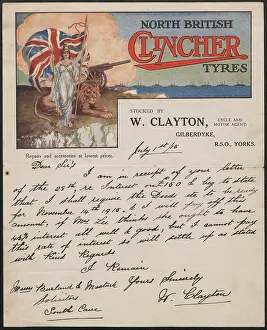 NORTH BRITISH
CLINCHER
TYRES
STOCKED BY
W. CLAYTON,
CYCLE AND
MOTOR AGENT,
GILBERDYKE,
R.S.O., YORKS.
Repairs and accessories at lowest prices.
July 1st/15
Dear Sirs
I am in receipt of your letter
of the 25th re Interest on £150 & beg to state
that I shall require the Deeds etc to be ready
for November 14th 1915. as I will pay off this
amount, if Mrs Lee thinks she ought to have
4½% interest all well & good, but I cannot pay
this rate of interest so will settle up as stated
with Kind Regards
I Remain
Yours Sincerely
W. Clayton
Messrs
Solicitors
South Cave